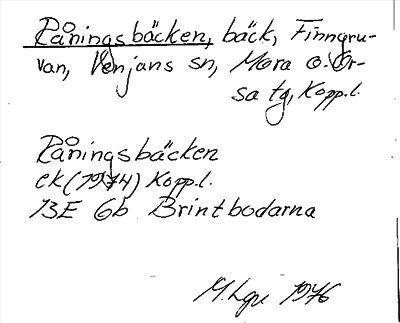 Råningsbäcken, bäck, Finngru-
van, Venjans sn, Mora o. Or-
sa tg, Kopp.l.
Råningsbäcken
ek (1974) Kopp.l.
13E 6b Brintbodarna
1976